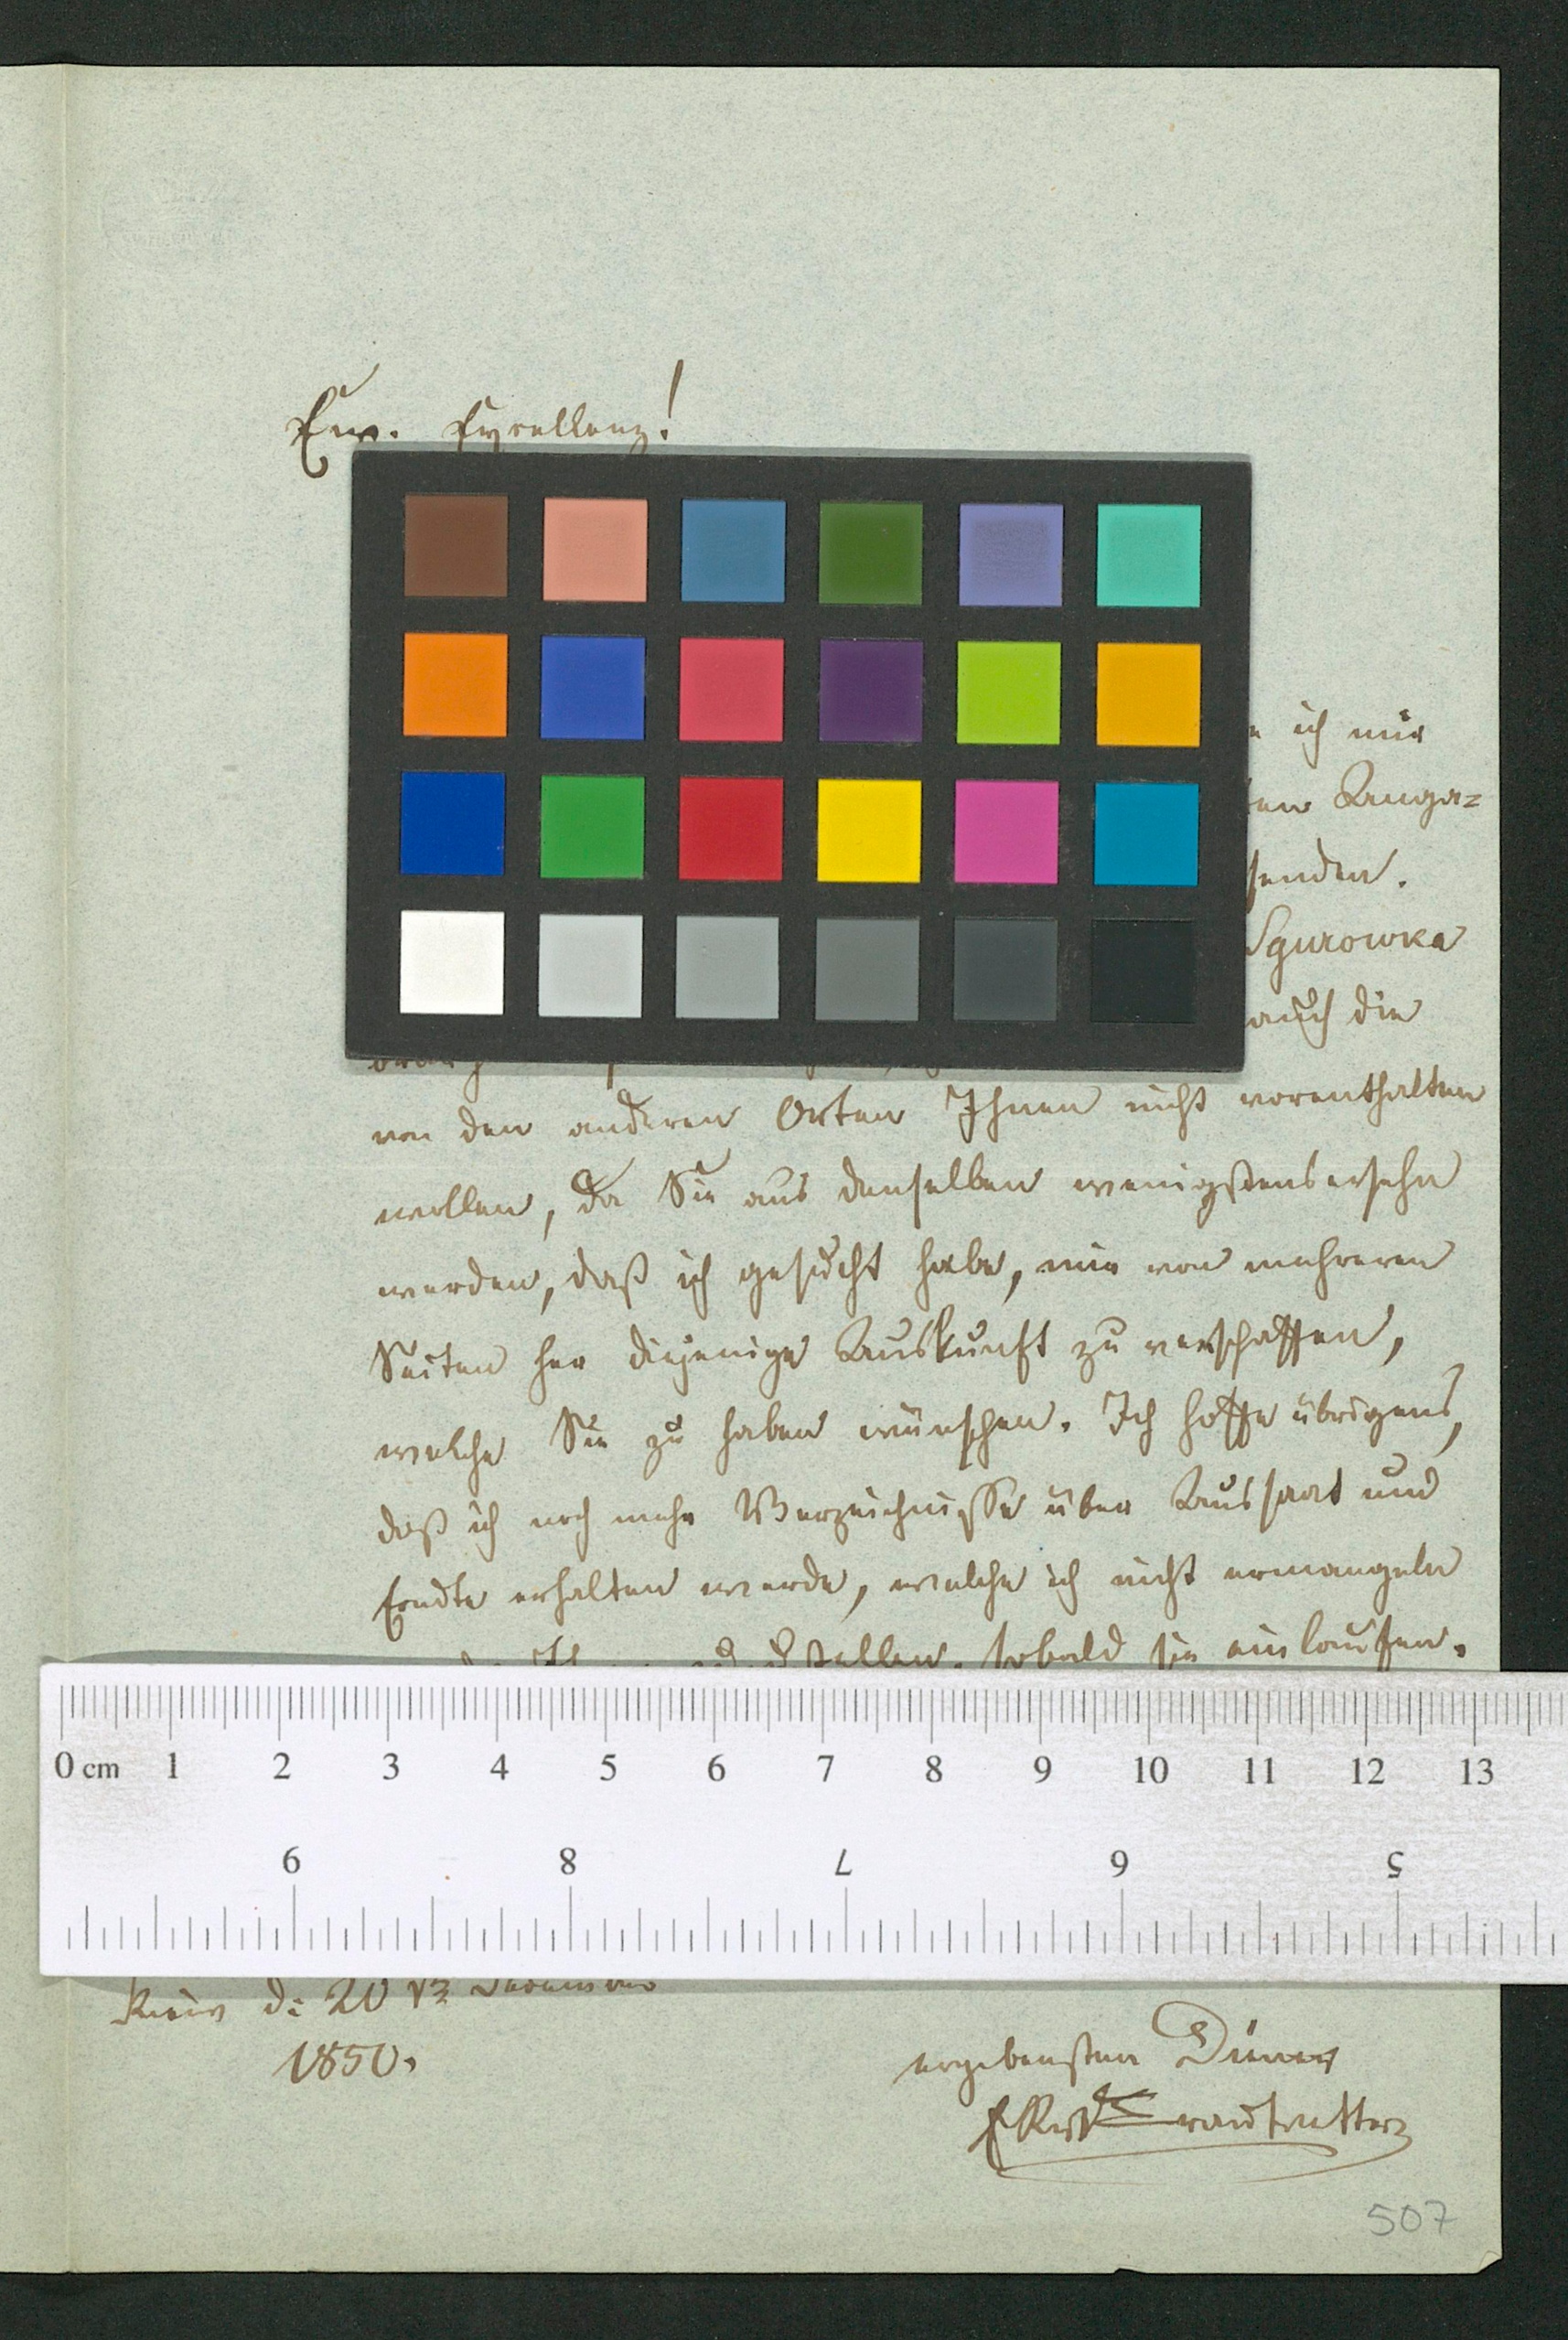 Ew. Excellenz!
ich mir
Anga=
senden.
Sgurowka
auch die
von den anderen Orten Ihnen nicht vorenthalten
wollen, da Sie aus denselben wenigstens ersehn
werden, daß ich gesucht habe, mir von mehreren
Seiten her diejenige Auskunft zu verschaffen,
welche Sie zu haben wünschen. Ich hoffe übrigens,
daß ich noch mehr Verzeichnisse über Aussaat und
Erndte erhalten werde, welche ich nicht ermangeln
sobald sie einlaufen.
0 cm 1 2 3 4 5 6 7 8 9 10 11 12 13
9 8 7 6 5
Kiew d: 20
1850.
ergebensten Diener
Trautvetter
507